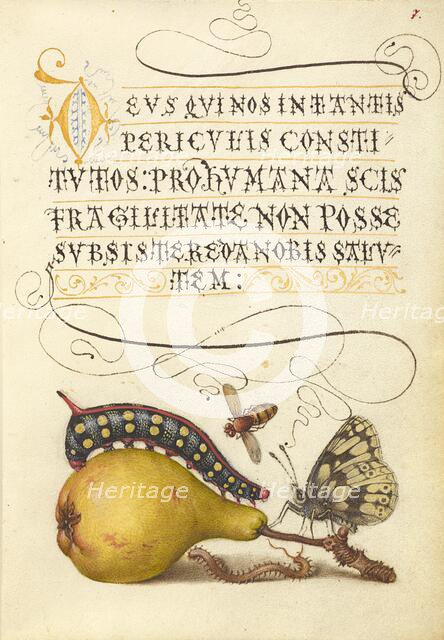 7.
DEUS QUI NOS IN TANTIS
PERICULIS CONSTI-
TUTOS: PRO HUMANA SCIS
FRAGILITATE NON POSSE
SUBSISTERE DA NOBIS SALU-
TEM:
Heritage Images
Heritage Images
Heritage Images
Heritage Images